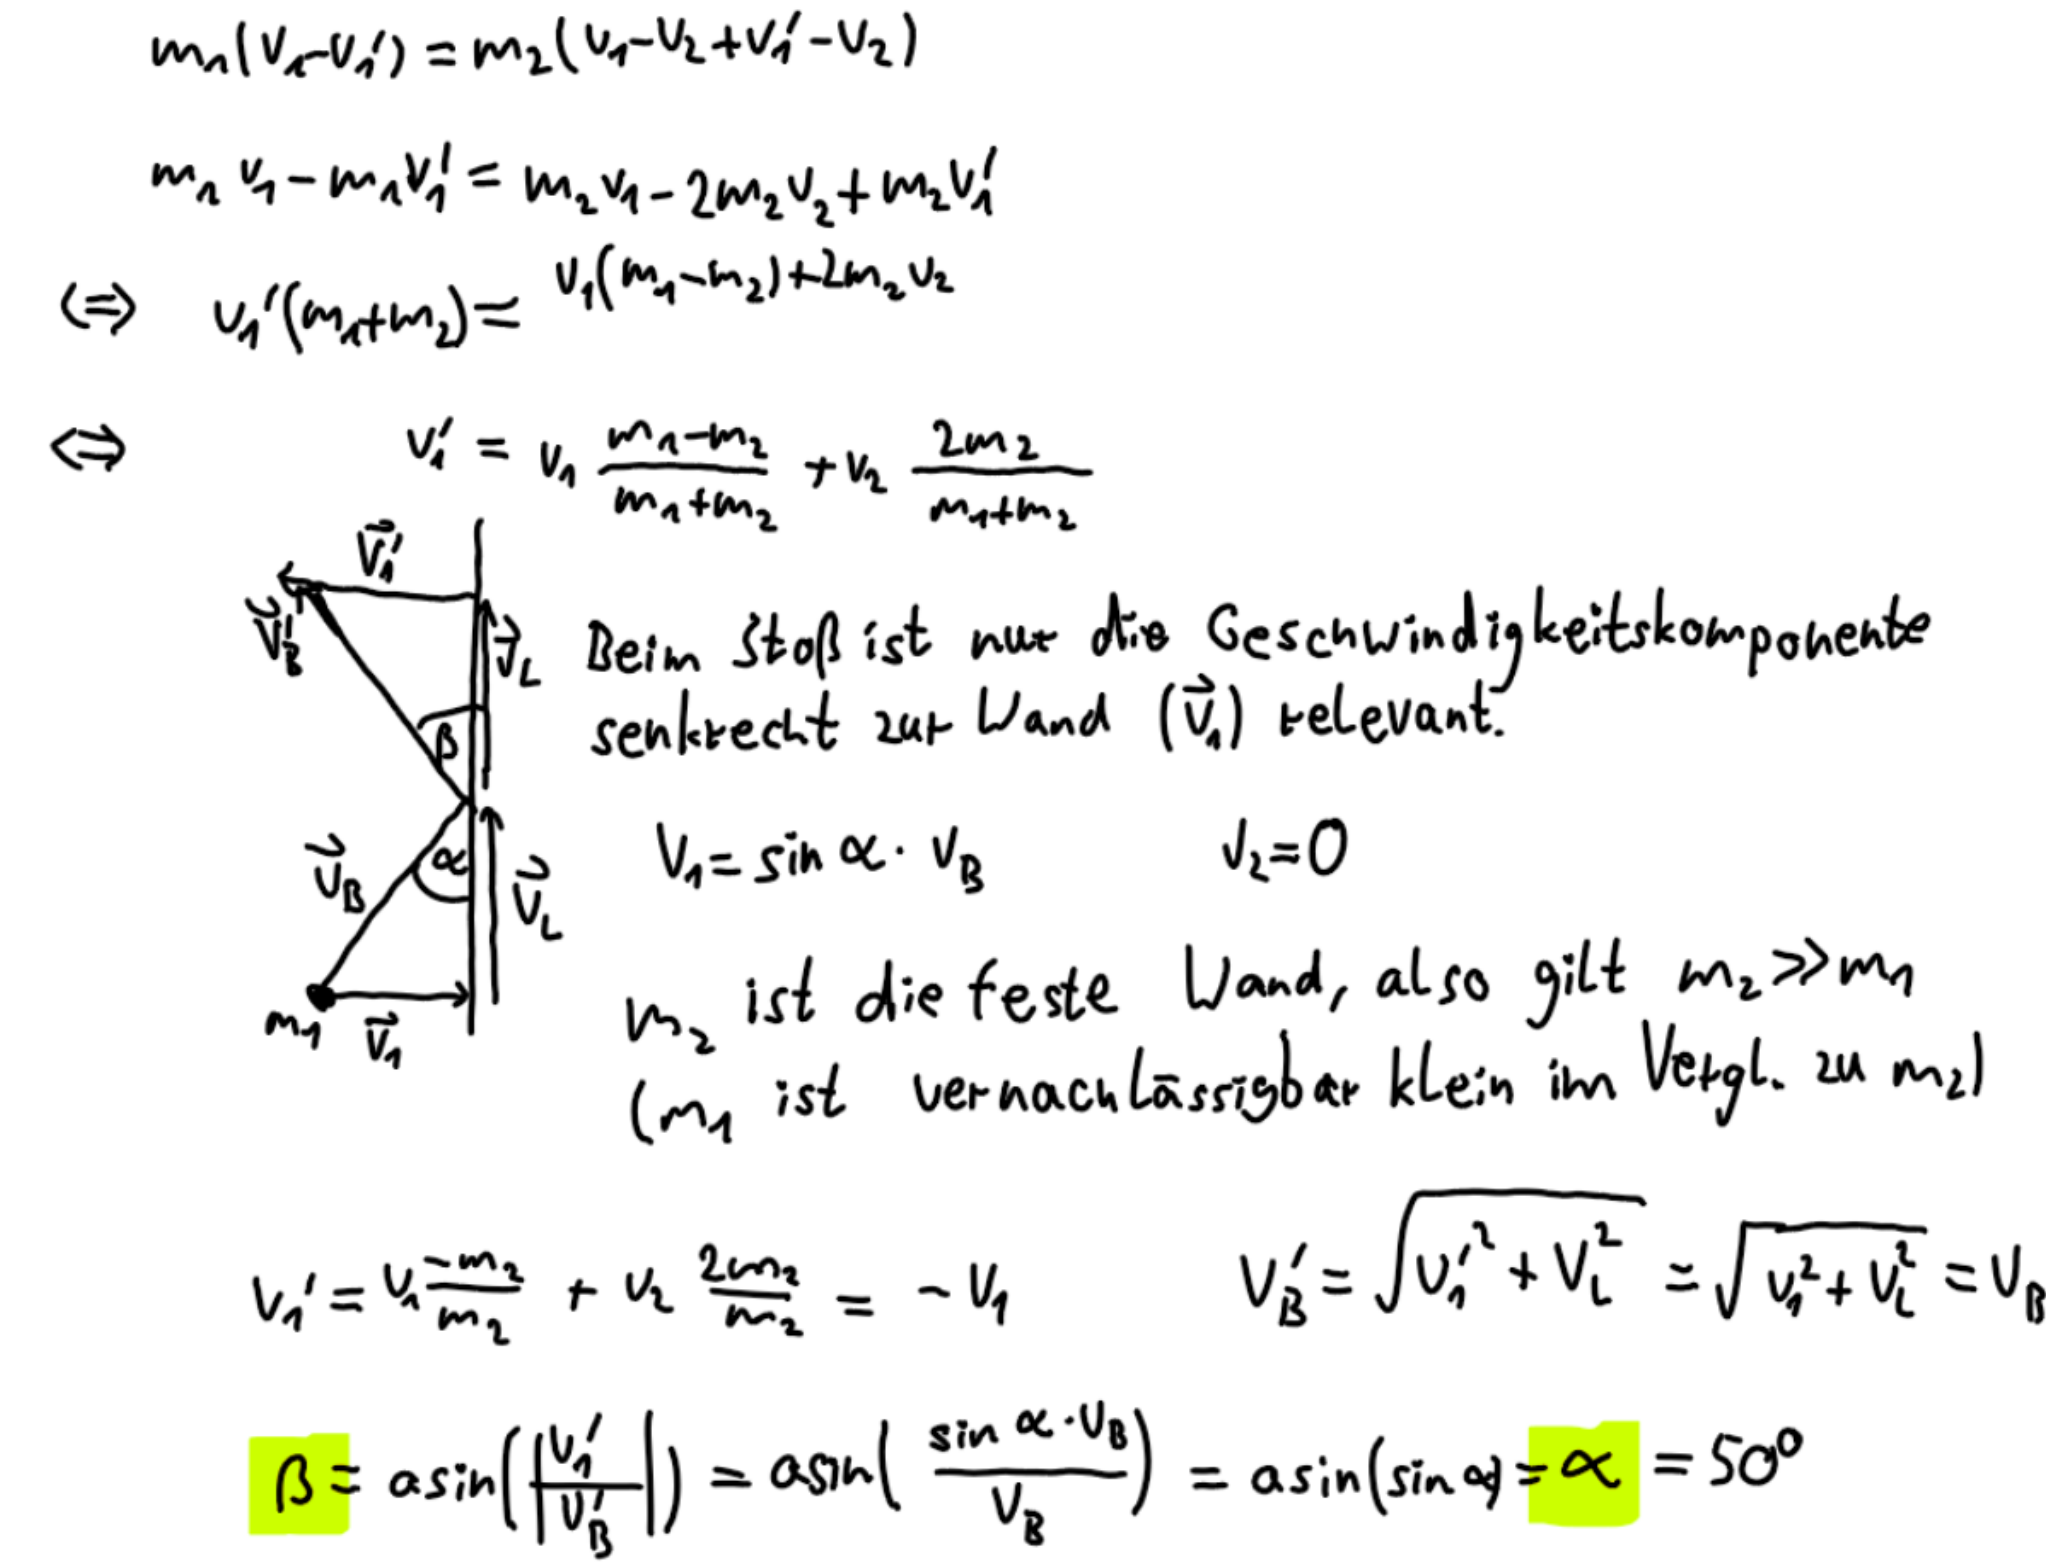 m₁(v₁-v₁') = m₂(v₁-v₂+v₁'-v₂)
m₁ v₁ - m₁v₁' = m₂v₁ - 2m₂v₂ + m₂v₁'
v₁(m₁-m₂)+2m₂v₂
⇔ v₁'(m₁+m₂) =
⇔ v₁' = v₁ (m₁-m₂)/(m₁+m₂) + v₂ 2m₂/(m₁+m₂)
v⃗₁'
v⃗_B'
v⃗_L
Beim Stoß ist nur die Geschwindigkeitskomponente
senkrecht zur Wand (v⃗₁) relevant.
β
v⃗_B
α
v⃗_L
v₁ = sin α · v_B v₂ = 0
m₁
v⃗₁
m₂ ist die feste Wand, also gilt m₂ ≫ m₁
(m₁ ist vernachlässigbar klein im Vergl. zu m₂)
v₁' = v₁ -m₂/m₂ + v₂ 2m₂/m₂ = -v₁ v_B' = √(v₁'² + v_L²) = √(v₁² + v_L²) = v_B
β = asin(|v₁'/v_B'|) = asin(sin α · v_B / v_B) = asin(sin α) = α = 50°